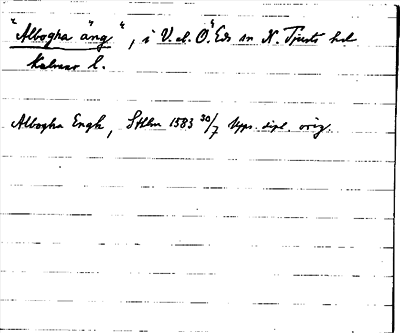 "Albogha äng", i V. el. Ö. Eds sn N. Tjusts hd
Kalmar l.
Albogha Engh, Sthlm 1583 30/7 Upps. dipl. orig.